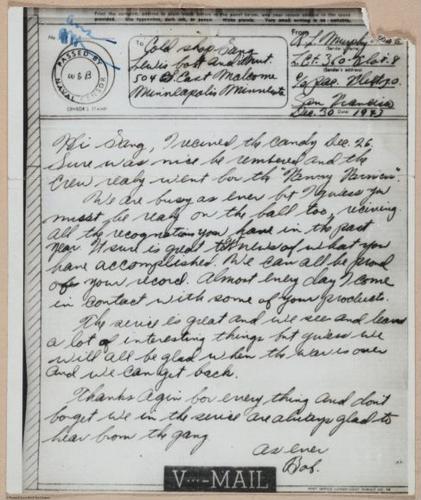 Print the complete address in plain block letters in the panel below, and your return address in the space
provided. Use typewriter, dark ink, or pencil. Write plainly. Very small writing is not suitable.
PASSED BY
NAVAL CENSOR
CENSOR'S STAMP
To:
Cold stop Gang
Lewis bolt And Nut.
504 East Malcome
Minneapolis Minnesota
From
R L Murphy
(Sender's name)
L.C.T. 360
(Sender's address)
San Francisco
Dec. 30 1943
Hi Gang, I recived the candy Dec. 26,
Sure was nice be rembered and the
Crew realy went for the
We are busy as ever but I guess you
must be realy on the ball too, reciving
all the recognation you have in the past
year It sure is great news of what you
have accomplished. We can all be proud
of your record. Almost every day I come
in contact with some of your products.
The service is great and we see and learn
a lot of interesting things but guess we
will all be glad when the war is over
and we can get back.
Thanks Agin for every thing and don't
forget we in the service are always glad to
hear from the gang
As ever
Bob.
V···—MAIL